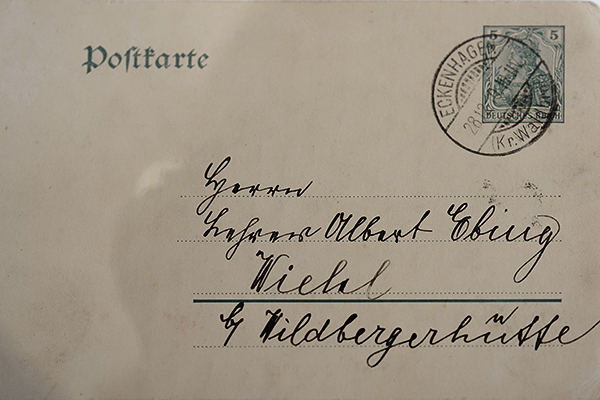 Postkarte
5 5
DEUTSCHES REICH
ECKENHAGEN
28.12.
(Kr. Wa
Herrn
Lehrer Albert Ebing
Wiehl
b/ Wildbergerhütte